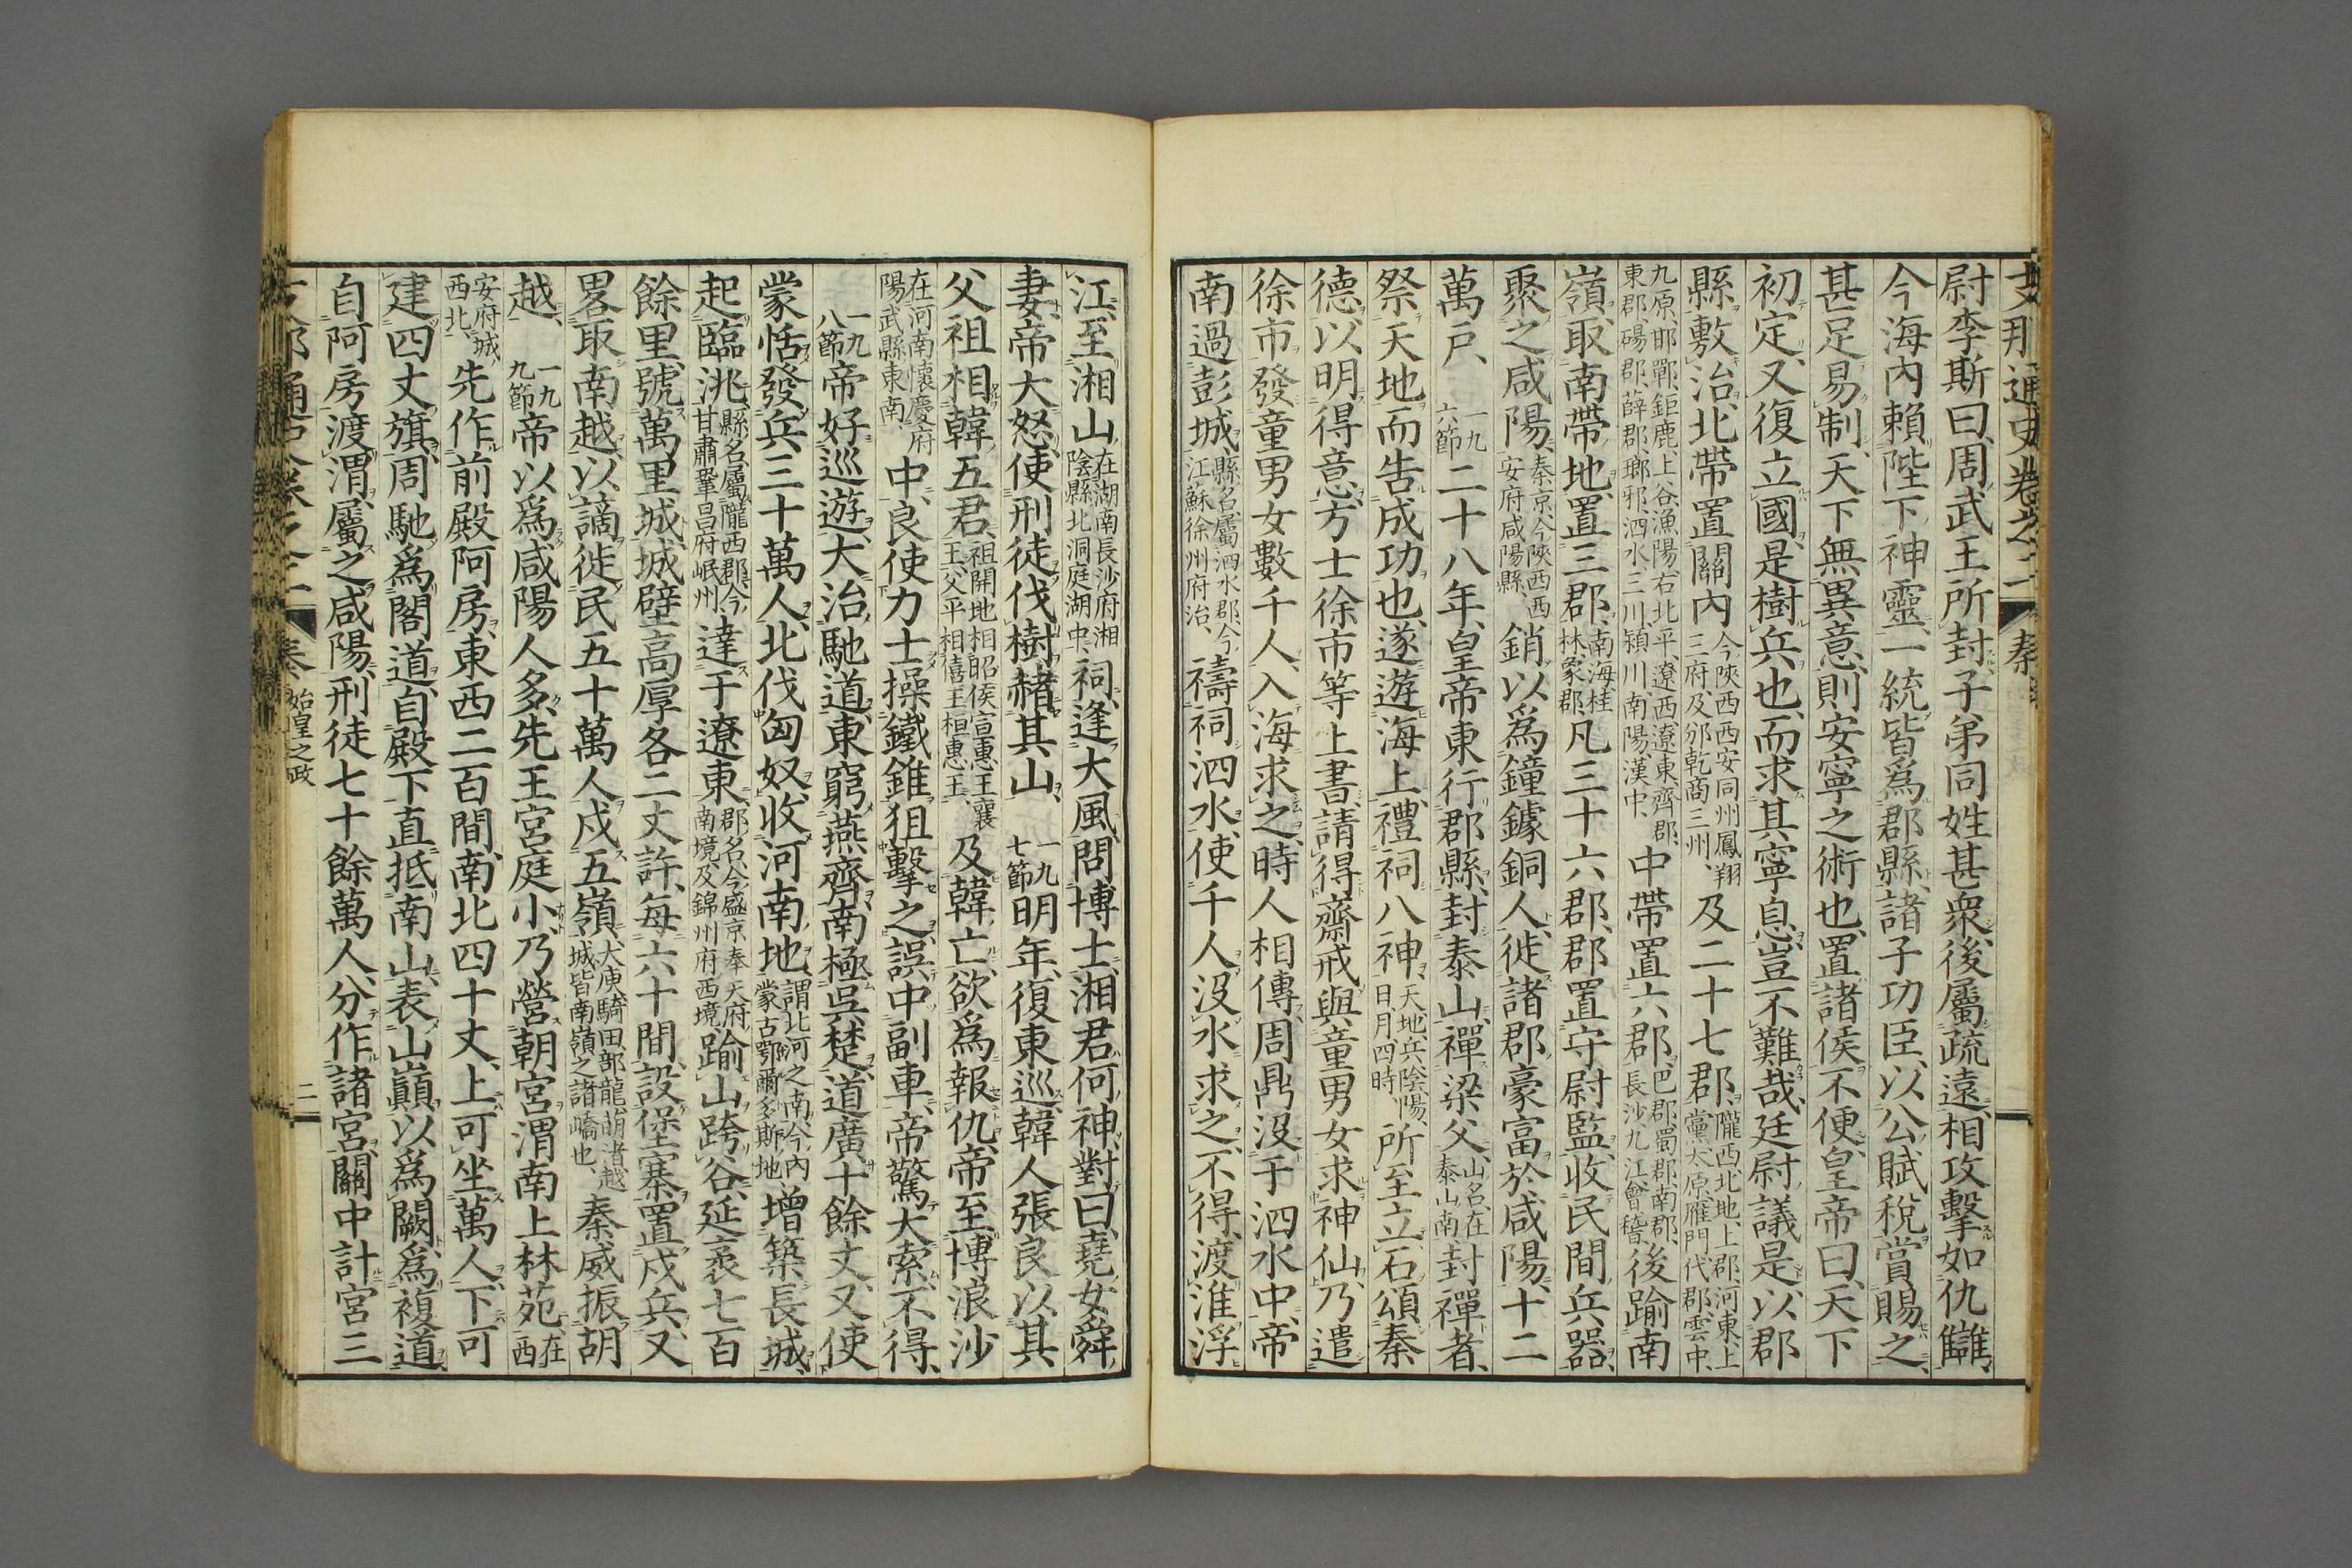 支那通史卷之二 秦
尉李斯曰、周武王所封、子弟同姓甚衆、後屬疏遠、相攻擊如仇讎、
今海內賴陛下神靈、一統皆爲郡縣、諸子功臣、以公賦稅賞賜之、
甚足易制、天下無異意、則安寧之術也、置諸侯不便、皇帝曰、天下
初定、又復立國、是樹兵也、而求其寧息、豈不難哉、廷尉議是、以郡
縣敷治、北帶置關內今陝西西安同州鳳翔三府及邠乾商三州、及二十七郡、隴西北地、上郡、河東、上黨、太原、雁門代郡、雲中、
九原、邯鄲、鉅鹿、上谷、漁陽、右北平、遼西、遼東、齊郡、東郡、碭郡、薛郡、瑯邪、泗水、三川、潁川、南陽、漢中、中帶置六郡、巴郡、蜀郡、南郡、長沙、九江、會稽、後踰南
嶺、取南帶地、置三郡、南海、桂林、象郡、凡三十六郡、郡置守尉監、收民閒兵器、
聚之咸陽、秦京、今陝西西安府咸陽縣、銷以爲鐘鐻銅人、徙諸郡豪富於咸陽、十二
萬戶、一九六節二十八年、皇帝東行郡縣、封泰山、禪梁父、山名、在泰山南、封禪者、
祭天地而告成功也、遂遊海上、禮祠八神、天、地、兵、陰、陽、日、月、四時、所至立石、頌秦
德、以明得意、方士徐市等上書、請得齋戒與童男女求神仙、乃遣
徐市發童男女數千人、入海求之、時人相傳、周鼎沒于泗水中、帝
南過彭城、縣名、屬泗水郡、今江蘇徐州府治、禱祠泗水、使千人沒水求之、不得、渡淮浮
江、至湘山在湖南長沙府湘陰縣北洞庭湖中、祠、逢大風、問博士、湘君何神、對曰、堯女舜
妻、帝大怒、使刑徒伐樹赭其山、一九七節明年、復東巡、韓人張良、以其
父祖相韓五君、祖開地相昭侯宣惠王襄王、父平相僖王桓惠王、及韓亡、欲爲報仇、帝至博浪沙
在河南懷慶府陽武縣東南、中、良使力士操鐵錐狙擊之、誤中副車、帝驚、大索、不得、
一九八節帝好巡遊、大治馳道、東窮燕齊、南極吳楚、道廣十餘丈、又使
蒙恬發兵三十萬人、北伐匈奴、收河南地、謂北河之南、今內蒙古鄂爾多斯地、增築長城、
起臨洮縣名、屬隴西郡、今甘肅鞏昌府岷州、達于遼東、郡名、今盛京奉天府南境及錦州府西境、踰山跨谷、延袤七百
餘里、號萬里城、城壁高厚各二丈許、每六十間、設堡寨、置戍兵、又
畧取南越、以謫徙民五十萬人戍五嶺、大庾、騎田、部龍、萌渚、越城、皆南嶺之諸嶠也、秦威振胡
越、一九九節帝以爲咸陽人多、先王宮庭小、乃營朝宮渭南上林苑、在西
安府城西北、先作前殿阿房、東西二百間、南北四十丈、上可坐萬人、下可
建四丈旗、周馳爲閣道、自殿下直抵南山、表山巔以爲闕、爲複道、
自阿房渡渭、屬之咸陽、刑徒七十餘萬人、分作諸宮、關中計宮三
支那通史卷之二 秦 始皇之政 二